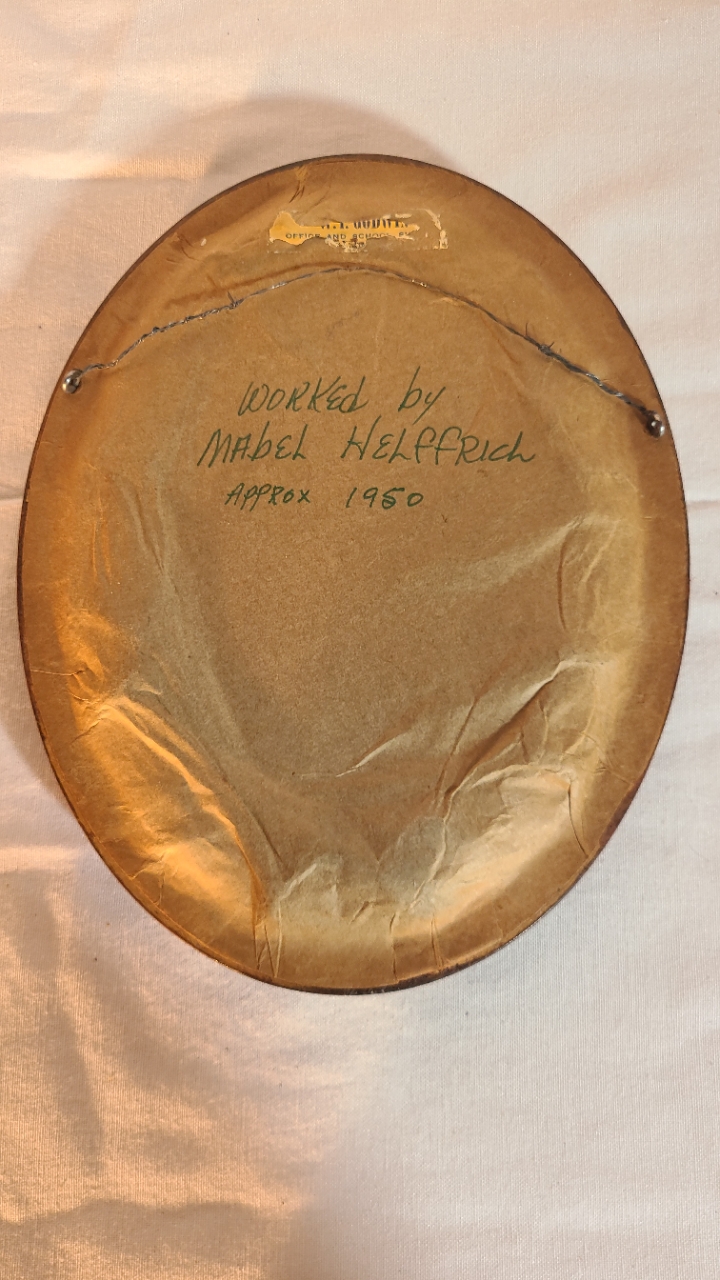 OFFICE AND SCHOOL
WORKEd by
MAbEL HELFFRICh
APPROX 1950